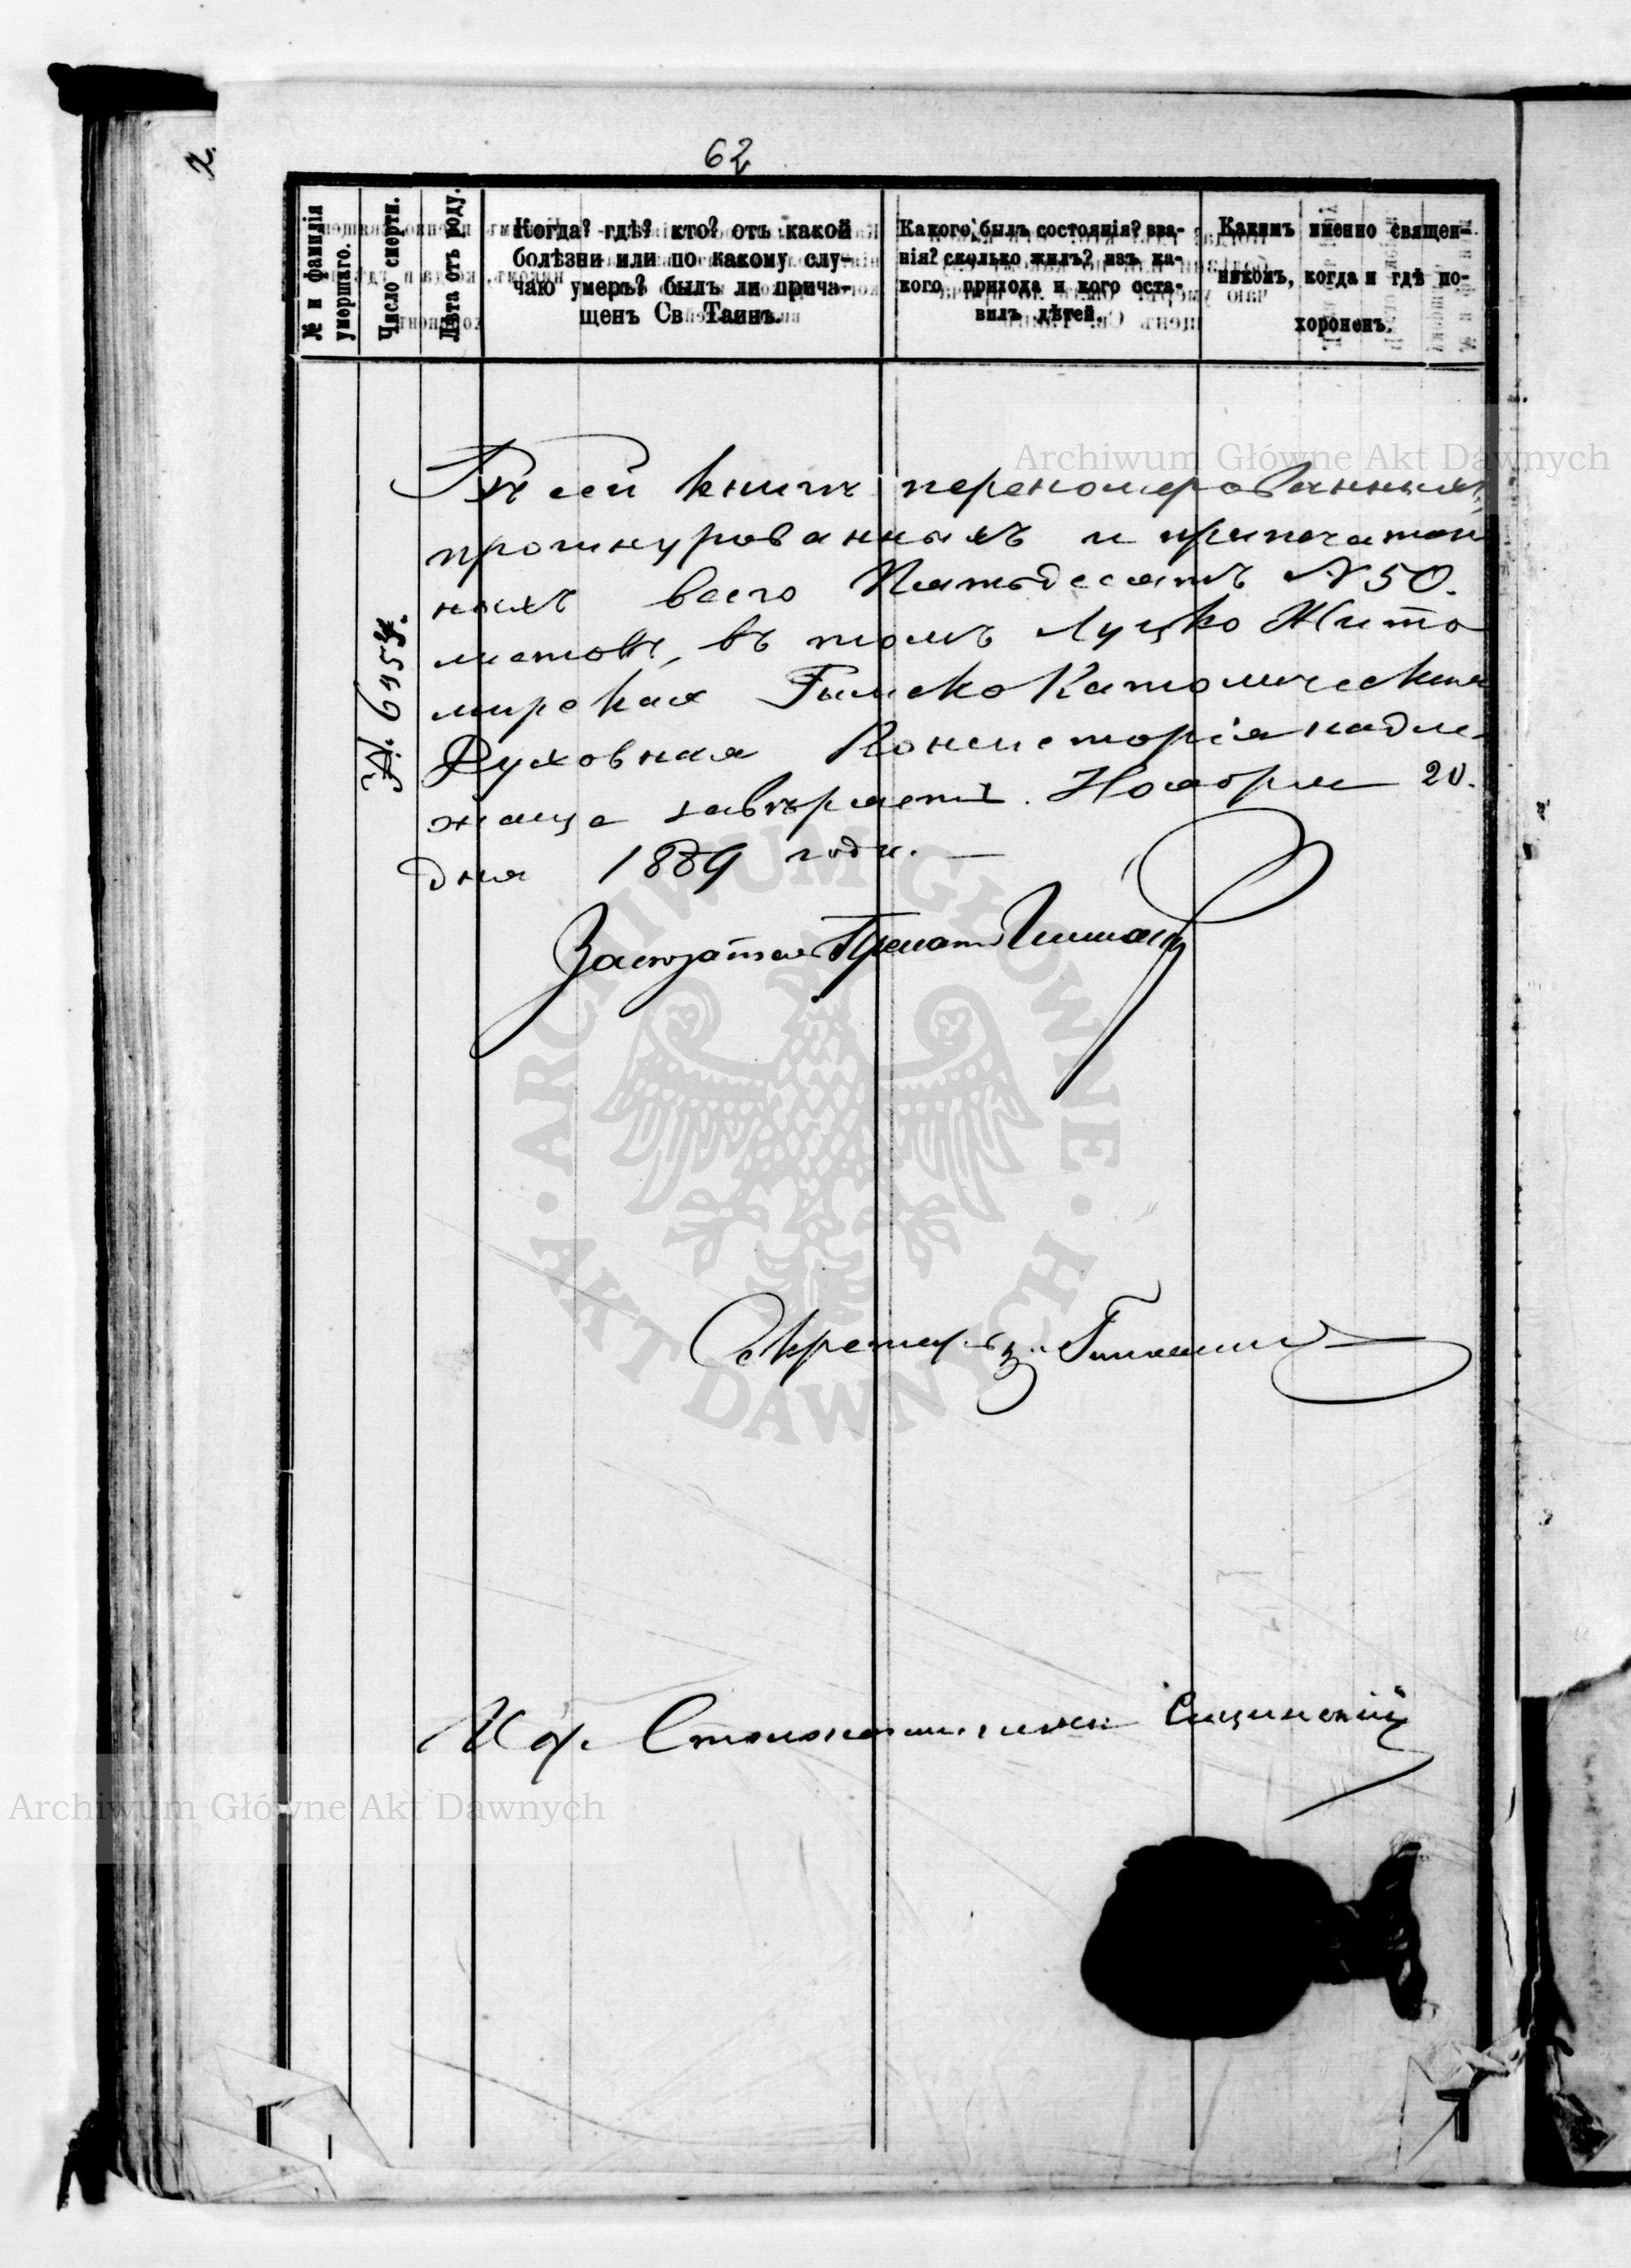 62
№ и фамилія
умершаго.
Число смерти.
Лѣта отъ роду.
Когда? гдѣ? кто? отъ какой
болѣзни или по какому слу-
чаю умеръ? былъ ли прича-
щенъ Св Таинъ.
Какого былъ состоянія? зва-
нія? сколько жилъ? изъ ка-
кого прихода и кого оста-
вилъ дѣтей.
Какимъ именно священ-
никомъ, когда и гдѣ по-
хороненъ.
Въ сей книгѣ переномерованныхъ
прошнурованныхъ и припечатан
ныхъ всего Пятьдесятъ N 50.
листовъ, въ томъ Луцко Жито
мирская Римско Католическая
Духовная Консисторія надле-
жаще завѣряетъ. Ноября 20.
дня 1889 года. —
Засѣдатель Прелатъ
Секретарь
И. д. Столоначальника Сицинскій
Archiwum Główne Akt Dawnych
Archiwum Główne Akt Dawnych
ARCHIWUM GŁÓWNE · AKT DAWNYCH ·